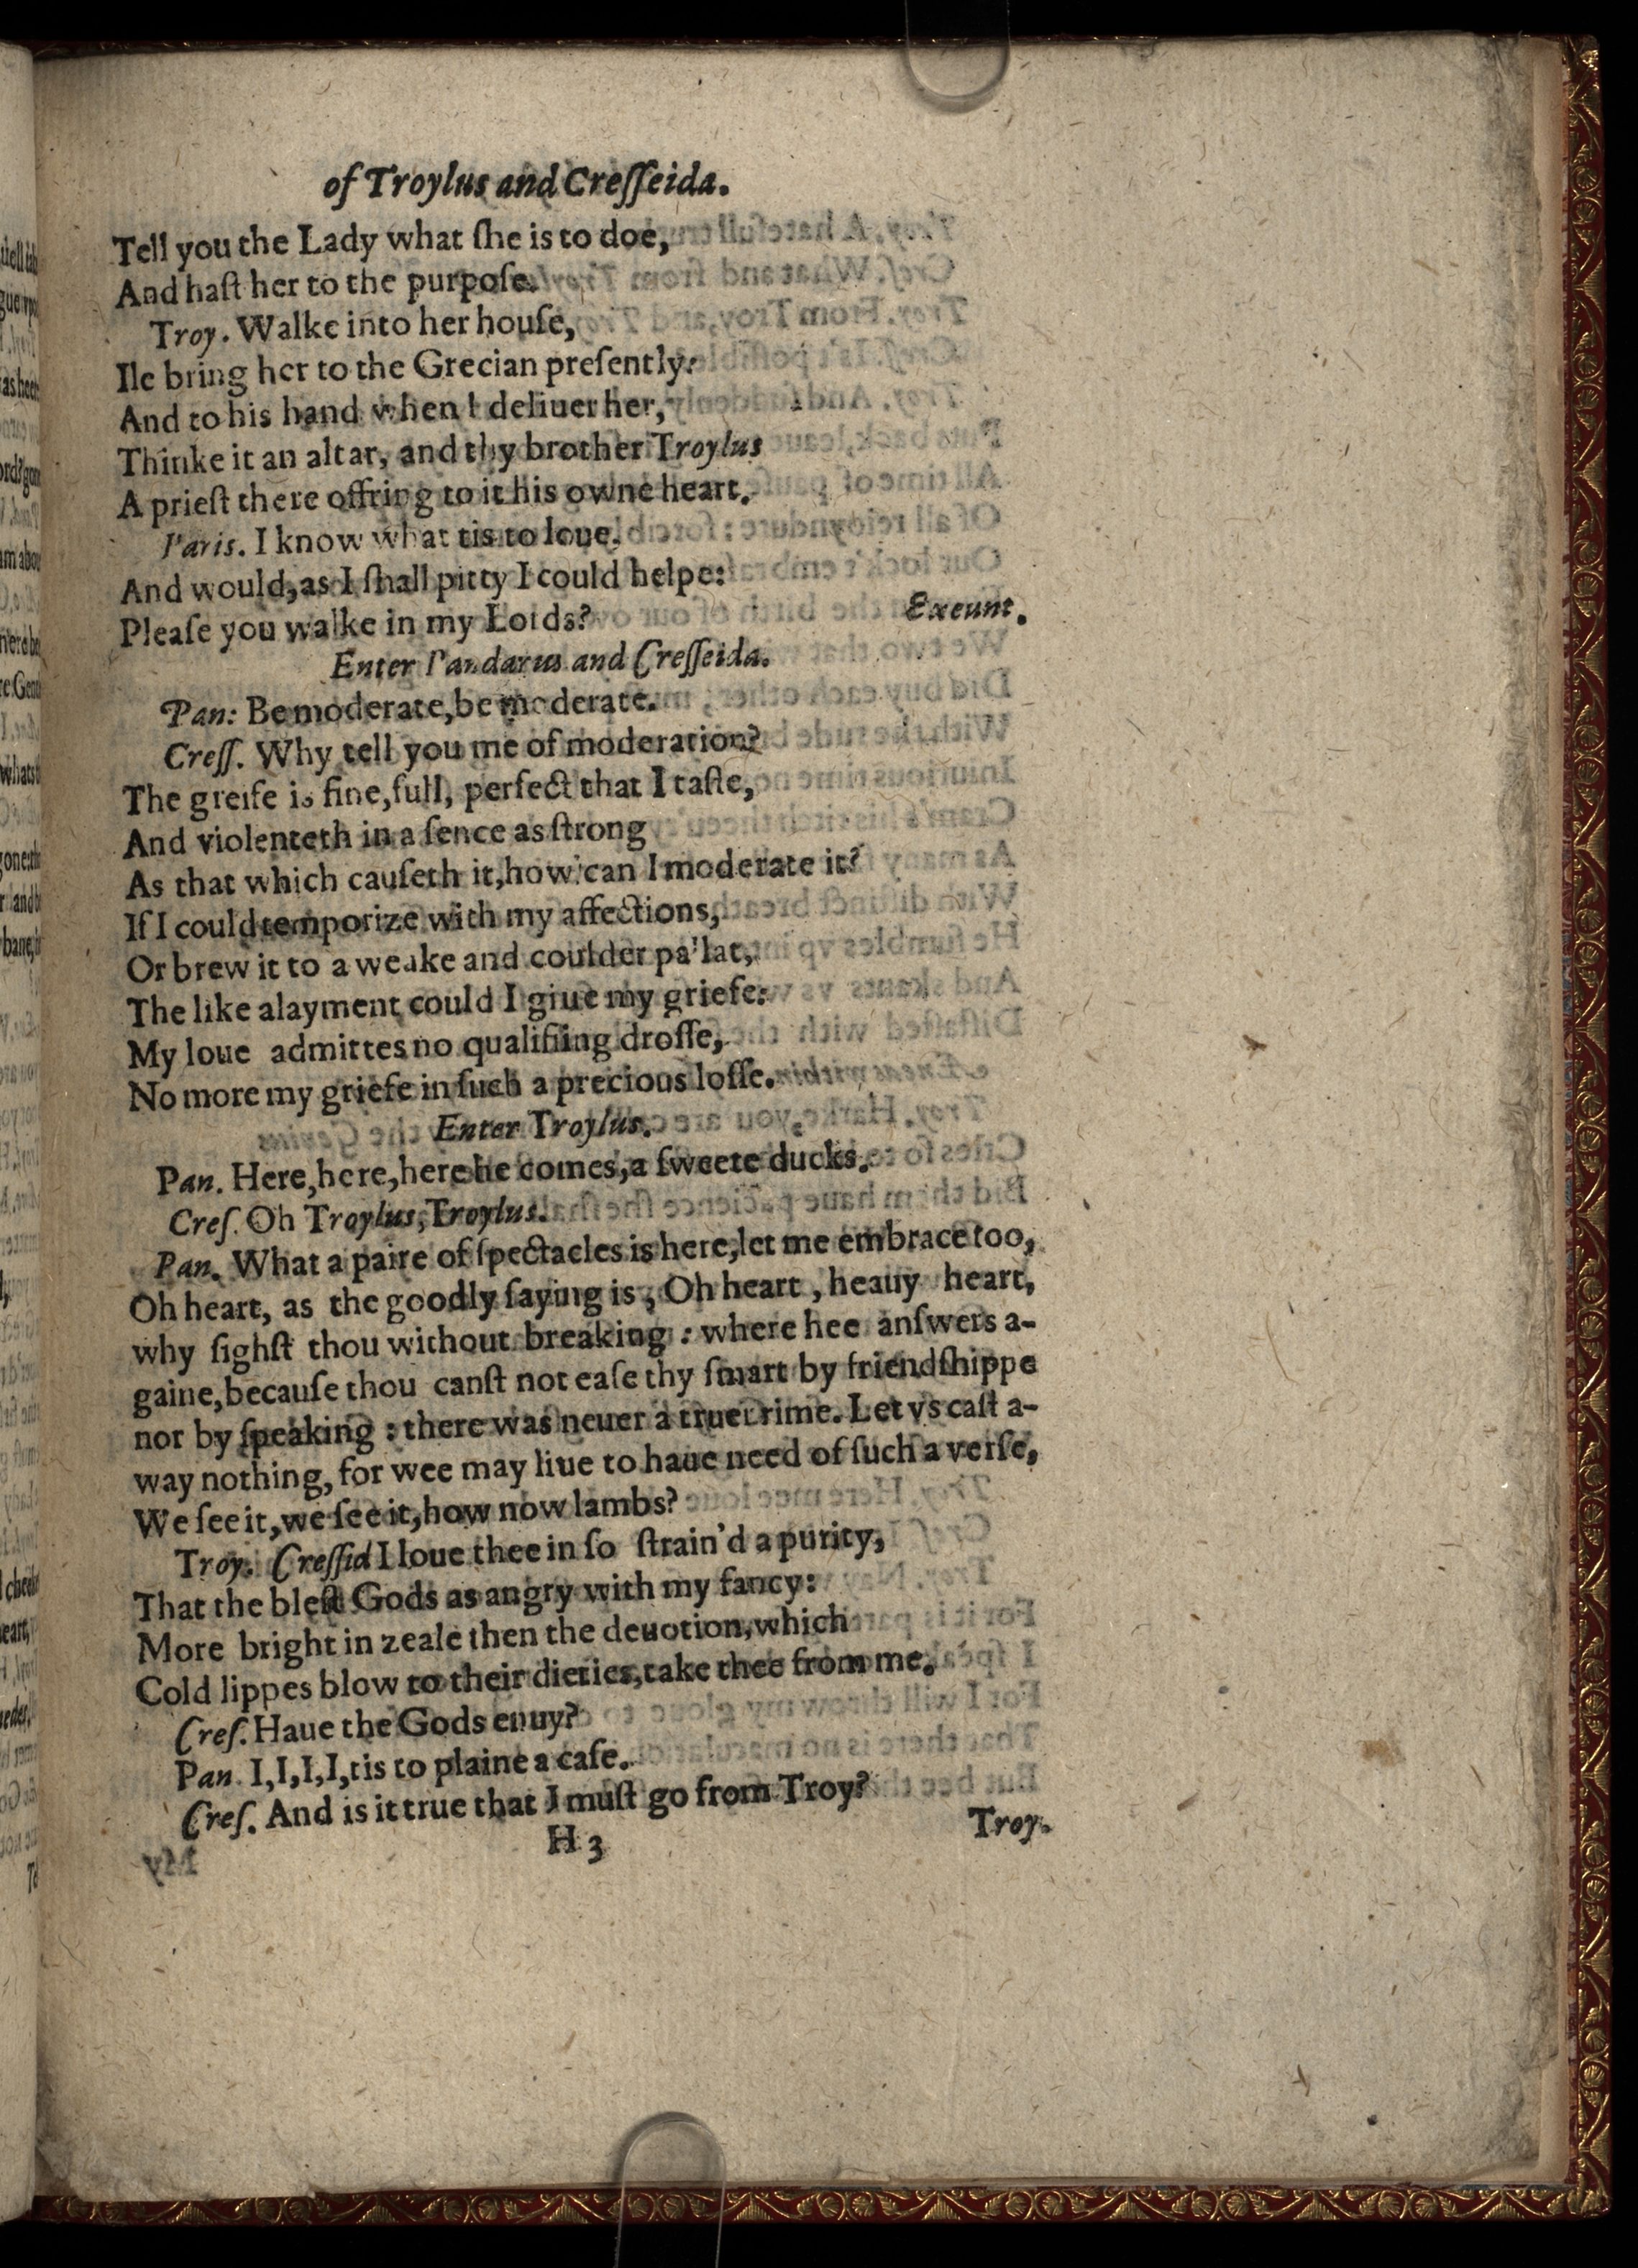 of Troylus and Creſſeida.
Tell you the Lady what ſhe is to doe,
And haſt her to the purpoſe.
Troy. Walke into her houſe,
Ile bring her to the Grecian preſently:
And to his hand when I deliuer her,
Thinke it an altar, and thy brother Troylus
A prieſt there offring to it his owne heart.
Paris. I know what tis to loue.
And would, as I ſhall pitty I could helpe:
Pleaſe you walke in my Lords? Exeunt.
Enter Pandarus and Creſſeida.
Pan: Be moderate, be moderate.
Creſſ. Why tell you me of moderation?
The greife is fine, full, perfect that I taſte,
And violenteth in a ſence as ſtrong
As that which cauſeth it, how can I moderate it?
If I could temporize with my affections,
Or brew it to a weake and coulder pallat,
The like alayment could I giue my griefe:
My loue admittes no qualifiing droſſe,
No more my griefe in ſuch a precious loſſe.
Enter Troylus.
Pan. Here, here, here he comes, a ſweete ducks.
Creſ. Oh Troylus, Troylus.
Pan. What a paire of ſpectacles is here, let me embrace too,
Oh heart, as the goodly ſaying is, Oh heart, heauy heart,
why ſighſt thou without breaking: where hee anſwers a-
gaine, becauſe thou canſt not eaſe thy ſmart by friendſhippe
nor by ſpeaking: there was neuer a truer rime. Let vs caſt a-
way nothing, for wee may liue to haue need of ſuch a verſe,
We ſee it, we ſee it, how now lambs?
Troy. Creſſid I loue thee in ſo ſtrain'd a purity,
That the bleſt Gods as angry with my fancy:
More bright in zeale then the deuotion, which
Cold lippes blow to their dieties, take thee from me.
Creſ. Haue the Gods enuy?
Pan. I, I, I, I, tis to plaine a caſe.
Creſ. And is it true that I muſt go from Troy?
H 3 Troy.